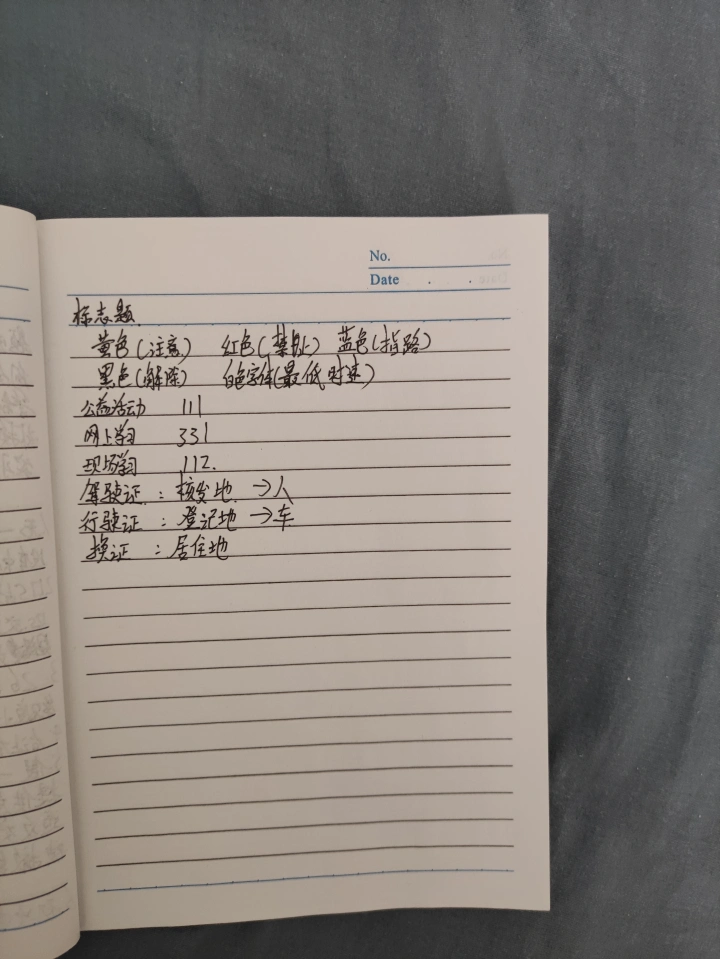 No.
Date
标志题
黄色(注意) 红色(禁止) 蓝色(指路)
黑色(解除) 白色字体(最低时速)
公益活动 111
网上学习 331
现场学习 112.
驾驶证：核发地 →人
行驶证：登记地 →车
换证：居住地